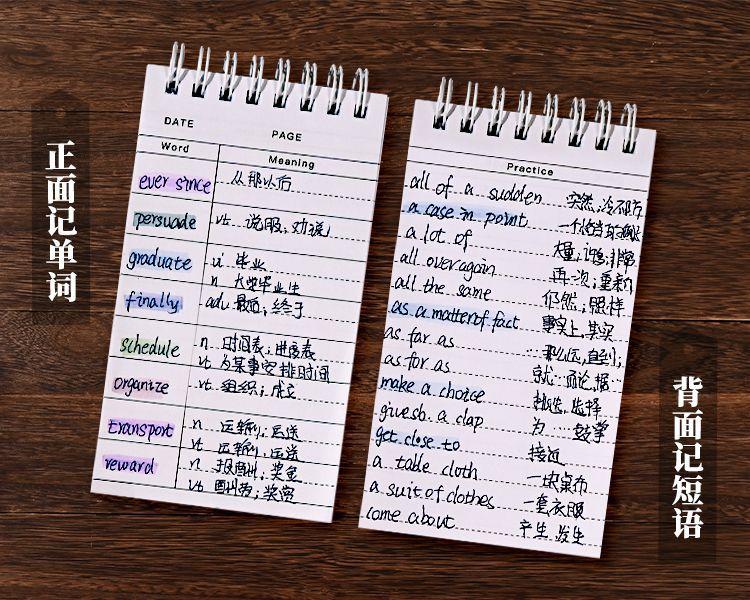 正面记单词
DATE PAGE
Word Meaning
ever since 从那以后
persuade vt. 说服；劝说
graduate vi 毕业
n 大学毕业生
finally adv 最后；终于
schedule n. 时间表；进度表
vt 为某事安排时间
organize vt. 组织；成立
transport n. 运输；运送
vt. 运输；运送
reward n. 报酬；奖金
vt. 酬劳；奖赏
Practice
all of a sudden 突然；冷不防
a case in point 一个恰当的
a lot of 大量；许多；非常
all over again 再一次；重新
all the same 仍然；照样
as a matter of fact 事实上；其实
as far as 那么远，直到；
as for as 就…而论，据…
make a choice 挑选，选择
give sb. a clap 为……鼓掌
get close to 接近
a table cloth 一块桌布
a suit of clothes 一套衣服
come about 产生，发生
背面记短语